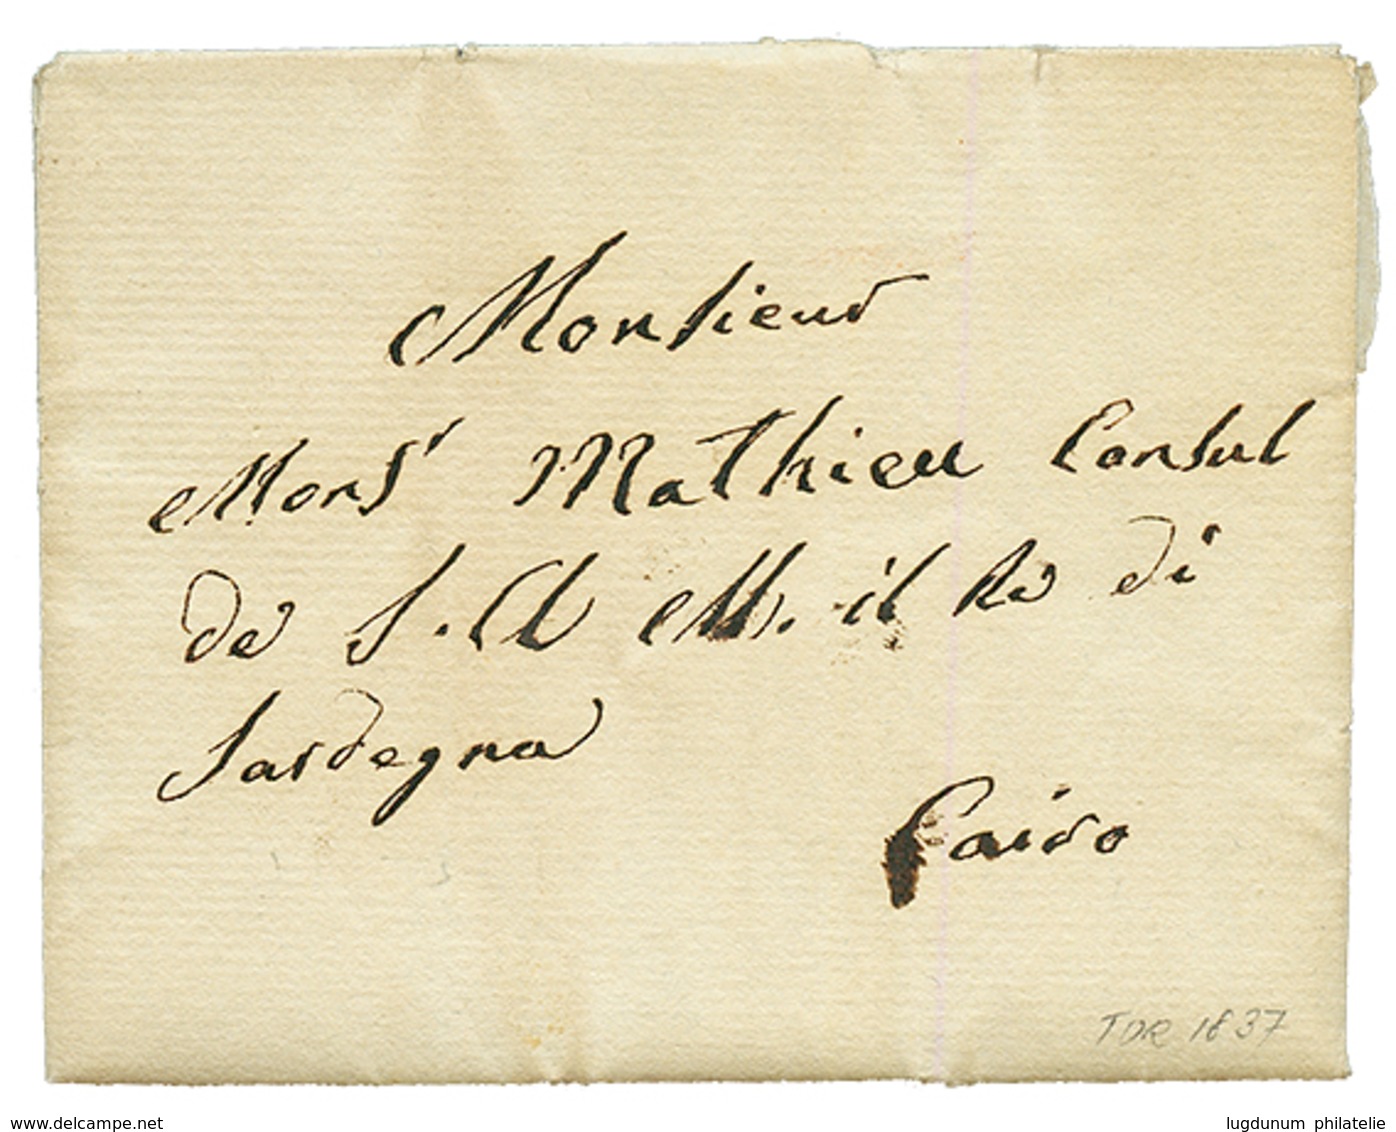 Monsieur
Monsr Mathieu Consul
de S. A M. il Re di
Sardegna
Cairo
TOR 1837
www.delcampe.net
lugdunum philatelie